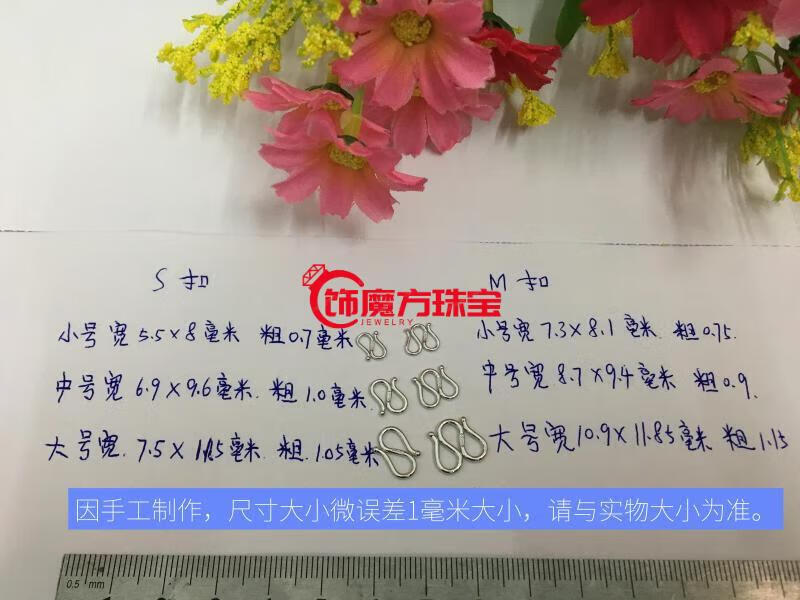 S扣
M扣
饰魔方珠宝
JEWELRY
小号宽5.5×8毫米 粗0.7毫米
小号宽7.3×8.1毫米.粗0.75.
中号宽6.9×9.6毫米.粗1.0毫米.
中号宽8.7×9.4毫米 粗0.9.
大号宽.7.5× 粗.1.05毫米
大号宽10.9×11.85毫米 粗1.15
因手工制作，尺寸大小微误差1毫米大小，请与实物大小为准。
0.5 mm